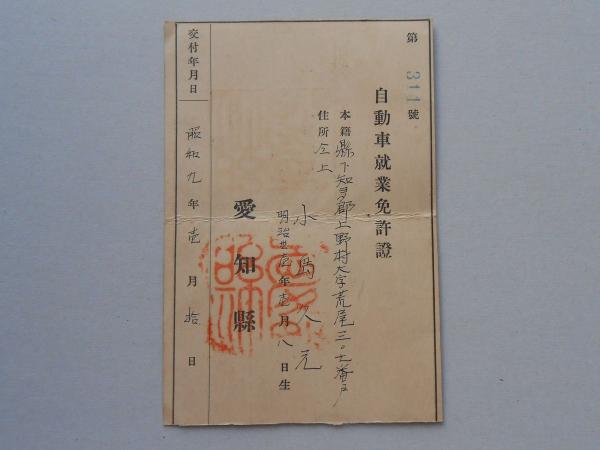 第 311 號
自動車就業免許證
本籍 縣下知多郡上野村大字荒尾三〇七番戸
住所 仝上
小島久元
明治廿壱年壱月八日生
愛知縣
交付年月日 昭和九年壱月拾日